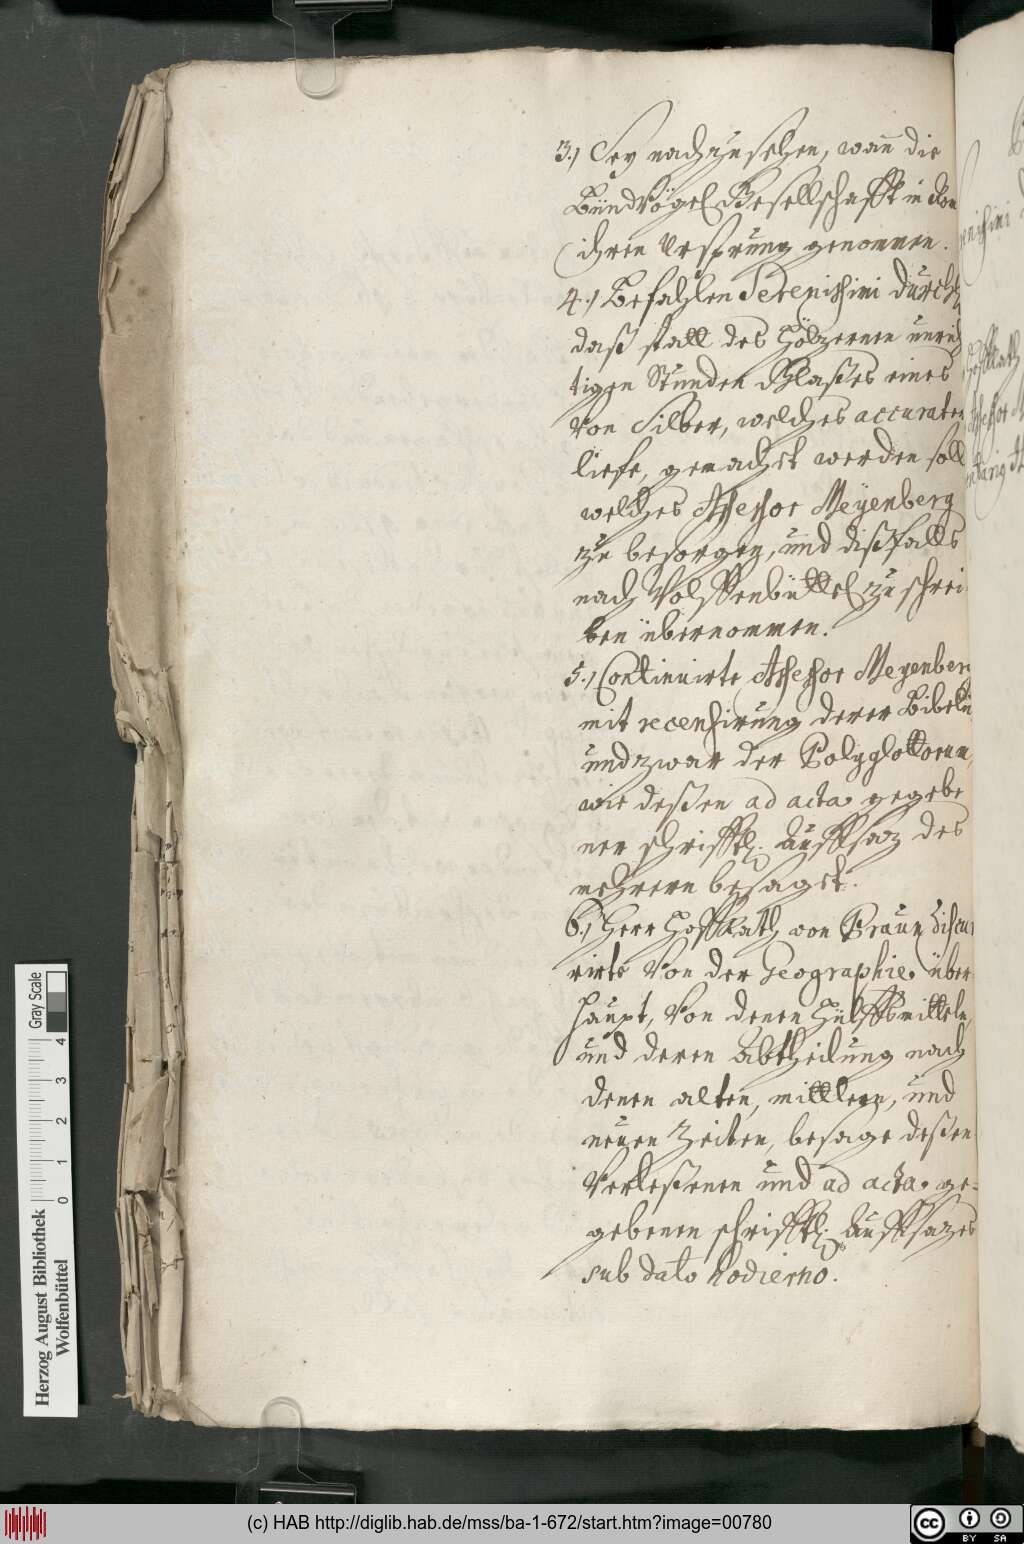 3.) Sey nachzusehen, wan̄ die
Bündvögel Gesellschafft in Rom
ihren Ursprung genommen.
4.) Befahlen Serenissimi durchl.
daß statt des höltzernen unrich
tigen Stunden Glaßes eines
von Silber, welches accurater
liefe, gemachet werden soll
welches Assessor Meÿenberg
zu besorgen, und dißfalls
nach Wolffenbüttel zu schrei-
ben übernommen.
5.) Continuirte Assessor Meyenberg
mit recensirung derer Bibeln
und zwar der Polyglottorum,
wie deßen ad acta gegebe
ner schrifftl. Auffsaz des
mehrern besaget.
6.) Herr HoffRath von Praun discur
rirte von der Geographie über-
haupt, von denen Hülffsmitteln,
und deren Abtheilung nach
denen alten, mittlern, und
neuen Zeiten, besage deßen
verleßenen und ad acta ge-
gebenen schrifftl. Auffsazes
sub dato hodierno.
HoffRath
Assessor
Herzog August Bibliothek
Wolfenbüttel
0 1 2 3 4
Gray Scale
(c) HAB http://diglib.hab.de/mss/ba-1-672/start.htm?image=00780
cc BY SA